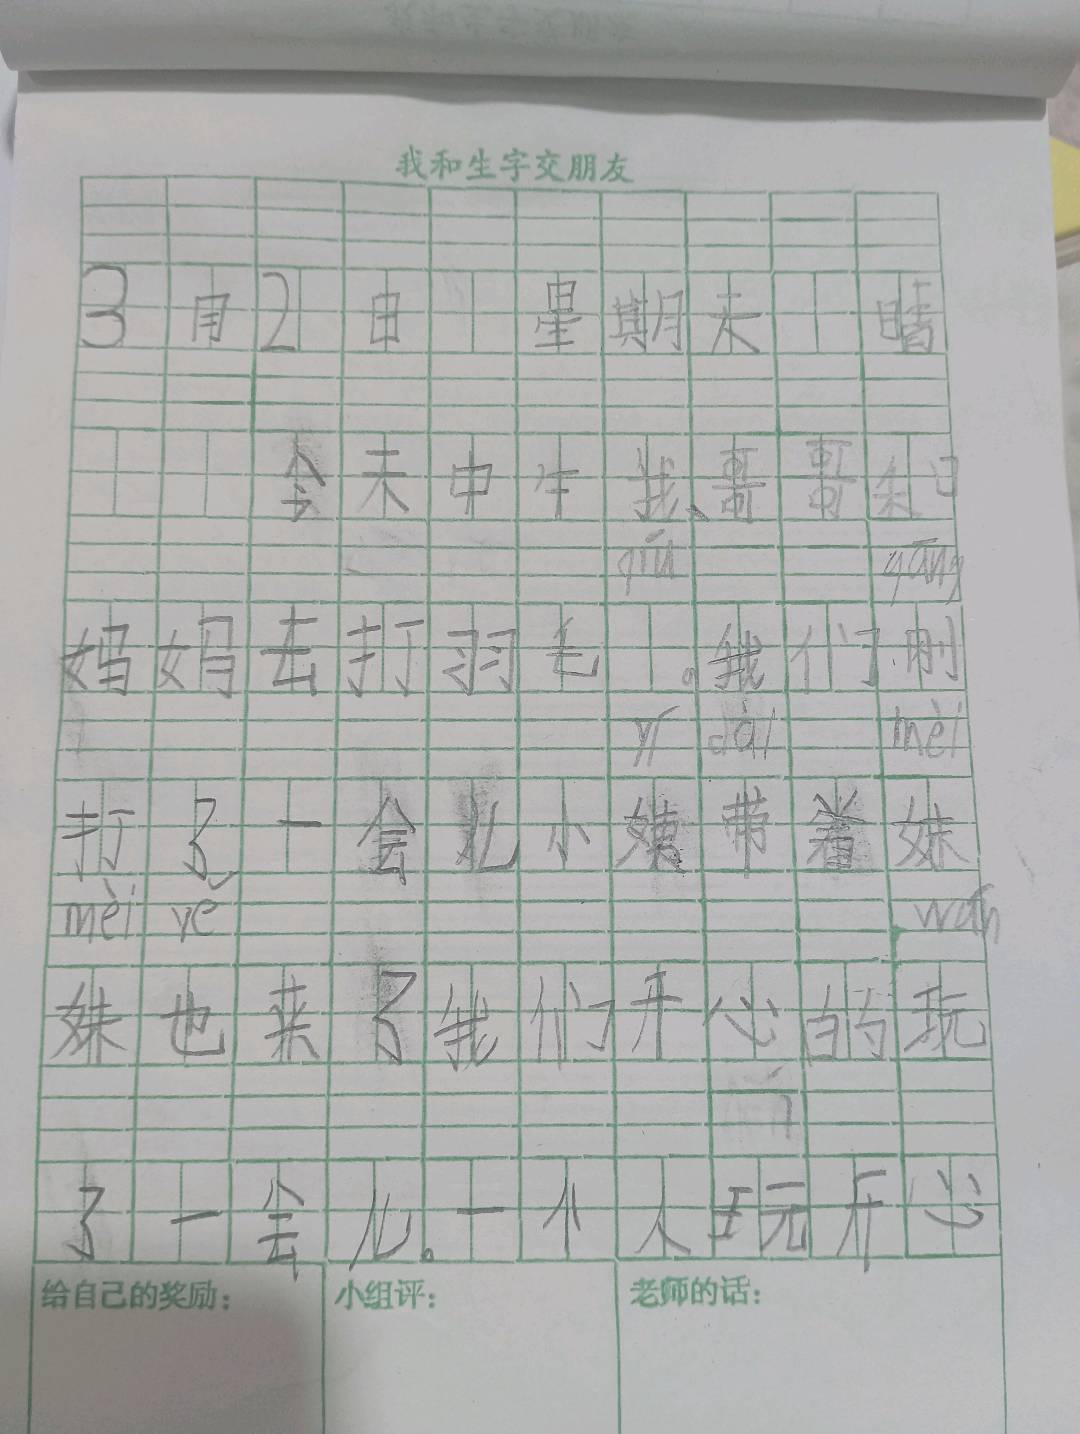 我和生字交朋友
3月2日 星期天 晴
今天中午我、哥哥和
qiú gāng
妈妈去打羽毛 。我们刚
yí dài mèi
打了一会儿小姨带着妹
mèi yě wán
妹也来了我们开心的玩
了一会儿。一个人玩开心
给自己的奖励： 小组评： 老师的话：